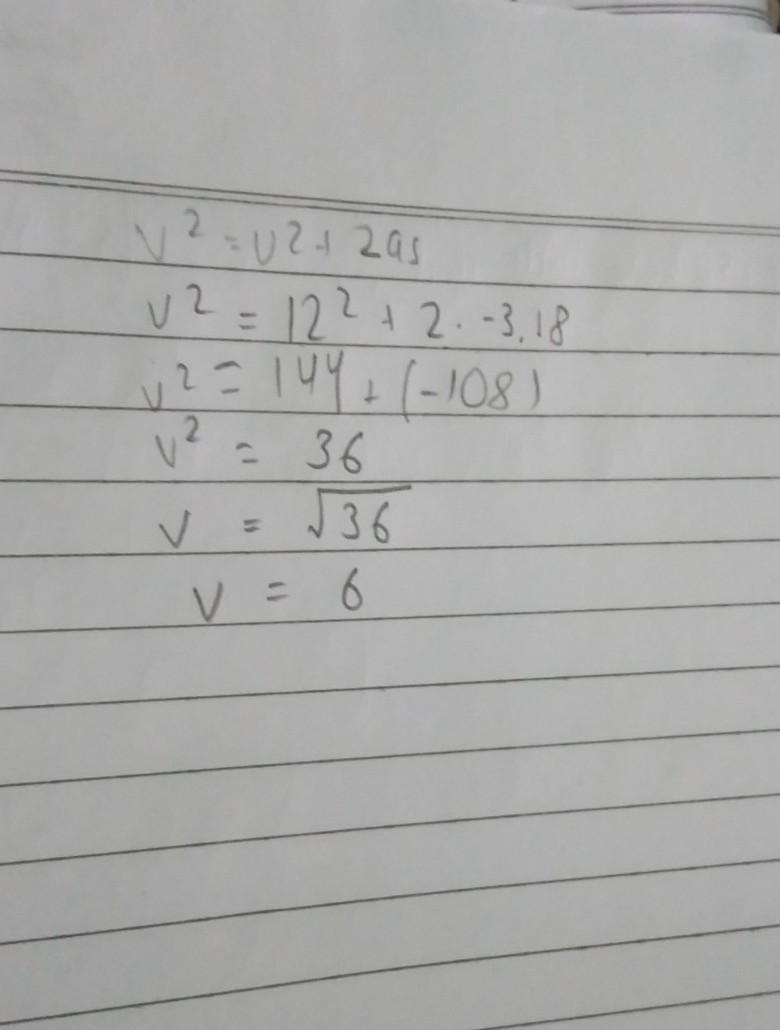 v² = u² + 2as
v² = 12² + 2. -3.18
v² = 144 + (-108)
v² = 36
v = √36
v = 6